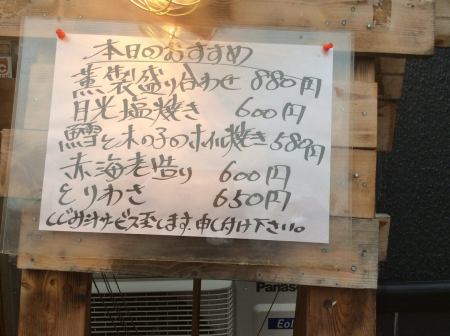 本日のおすすめ
薫製盛り合わせ 880円
目光塩焼き 600円
鱈と木の子のホイル焼き 580円
赤海老造り 600円
とりわさ 650円
しじみ汁サービス至します。申し付け下さい。
Panasonic
Eol